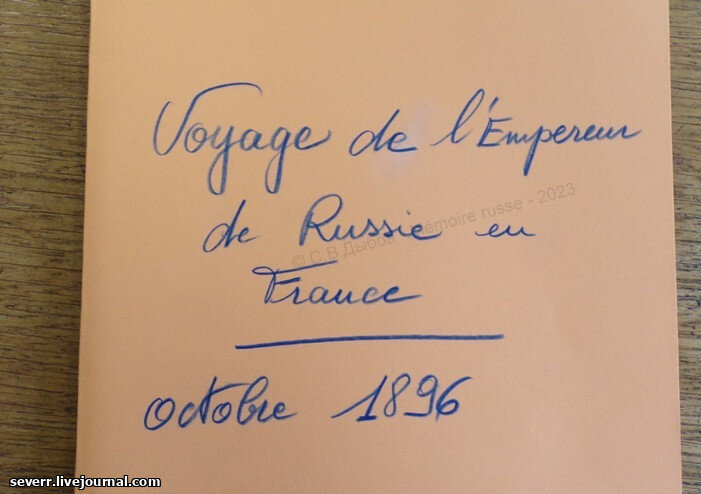 Voyage de l'Empereur
de Russie en
© С.В.Дыбов mémoire russe - 2023
France
octobre 1896
severr.livejournal.com